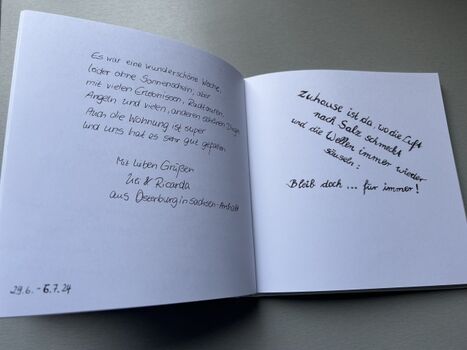 Es war eine wunderschöne Woche,
leider ohne Sonnenschein, aber
mit vielen Erlebnissen, Radtouren,
Angeln und vielen, anderen schönen Dingen
Auch die Wohnung ist super
und uns hat es sehr gut gefallen
Mit lieben Grüßen
& Ricarda
aus Osterburg in Sachsen-Anhalt
29.6. - 6.7.24
Zuhause ist da, wo die Luft
nach Salz schmeckt
und die Wellen immer wieder
säuseln:
Bleib doch ... für immer!